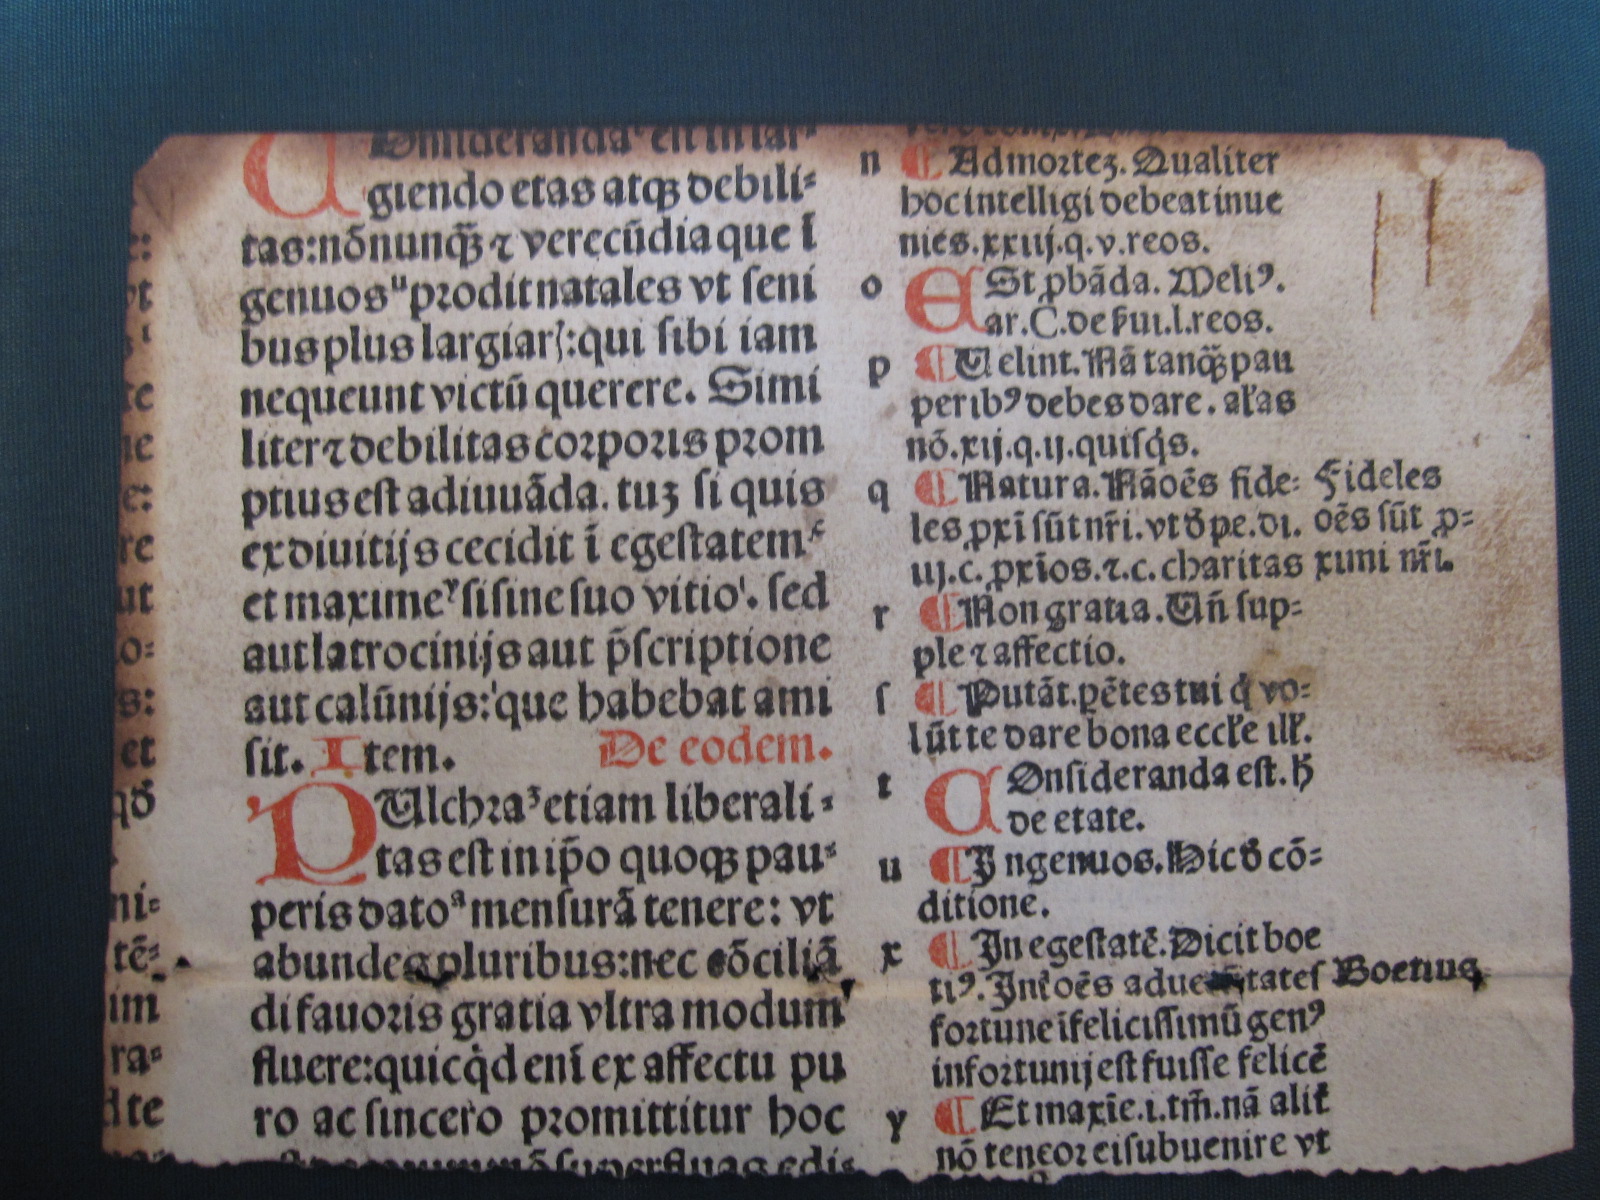 e:
vt
te
ne
e:
re
ut
o:
s:
et
qđ
ni-
tē-
im
ra-
d te
COnsideranda est in lar-
giendo etas atqꝫ debili-
tas: nōnunqꝫ ⁊ verecūdia que ī
genuos ᵘ prodit natales vt seni
bus plus largiarꝭ: qui sibi iam
nequeunt victū querere. Simi
liter ⁊ debilitas corporis prom
ptius est adiuuāda. tuꝫ si quis
ex diuitijs cecidit ī egestatem ˣ
et maxime ʸ si sine suo vitio. sed
aut latrocinijs aut p̄scriptione
aut calūnijs: que habebat ami
sit. Item. De eodem.
PUlchra etiam liberali-
tas est in ip̄o quoqꝫ pau-
peris dato ᵃ mensurā tenere: vt
abundes pluribus: nec cōciliā
di fauoris gratia vltra modum
fluere: quicq̇d enī ex affectu pu
ro ac sincero promittitur hoc
n ¶ Ad morteꝫ. Qualiter
hoc intelligi debeat inue
nies. xxiij. q. v. reos.
o ESt ꝓbāda. Meliꝰ.
ar. C. de ẜui. l. reos.
p ¶ Uelint. Nā tanqꝫ pau
peribꝰ debes dare. al'as
nō. xij. q. ij. quisq̇s.
q ¶ Natura. Nā oēs fide: Fideles
les ꝓxī sūt nr̄i. vt đ pe. di. oēs sūt ꝓ-
uj. c. ꝓxīos. ⁊. c. charitas ximi nr̄i.
r ¶ Non gratia. Un̄ sup-
ple ⁊ affectio.
s ¶ Putāt. pētes tui q̇ vo-
lūt te dare bona eccl'e ill'.
t COnsideranda est. ħ
de etate.
u ¶ Ingenuos. Hic đ cō-
ditione.
x ¶ In egestatē. Dicit boe
tiꝰ. Int̄ oēs aduersitates Boetius
fortune īfelicissimū genꝰ
infortunij est fuisse felicē
y ¶ Et maxīe. i. tm̄. nā alit̄
nō teneor ei subuenire vt